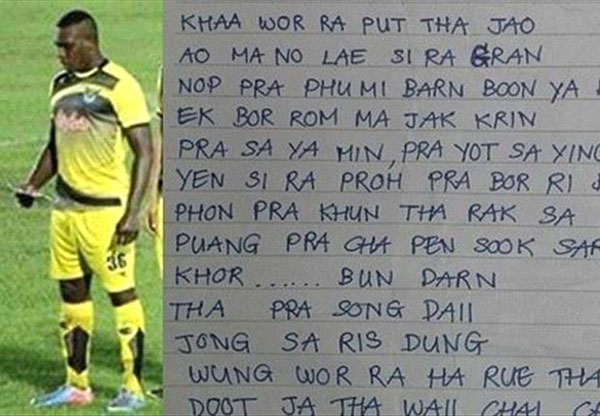 KHAA WOR RA PUT THA JAO
AO MA NO LAE SI RA GRAN
NOP PRA PHU MI BARN BOON YA
EK BOR ROM MA JAK KRIN
PRA SA YA MIN, PRA YOT SA YING
YEN SI RA PROH PRA BOR RI
PHON PRA KHUN THA RAK SA
PUANG PRA CHA PEN SOOK SAR
KHOR ...... BUN DARN
THA PRA SONG DAII
JONG SA RIS DUNG
WUNG WOR RA HA RUE THA
DOOT JA THA WAII CHAI
36